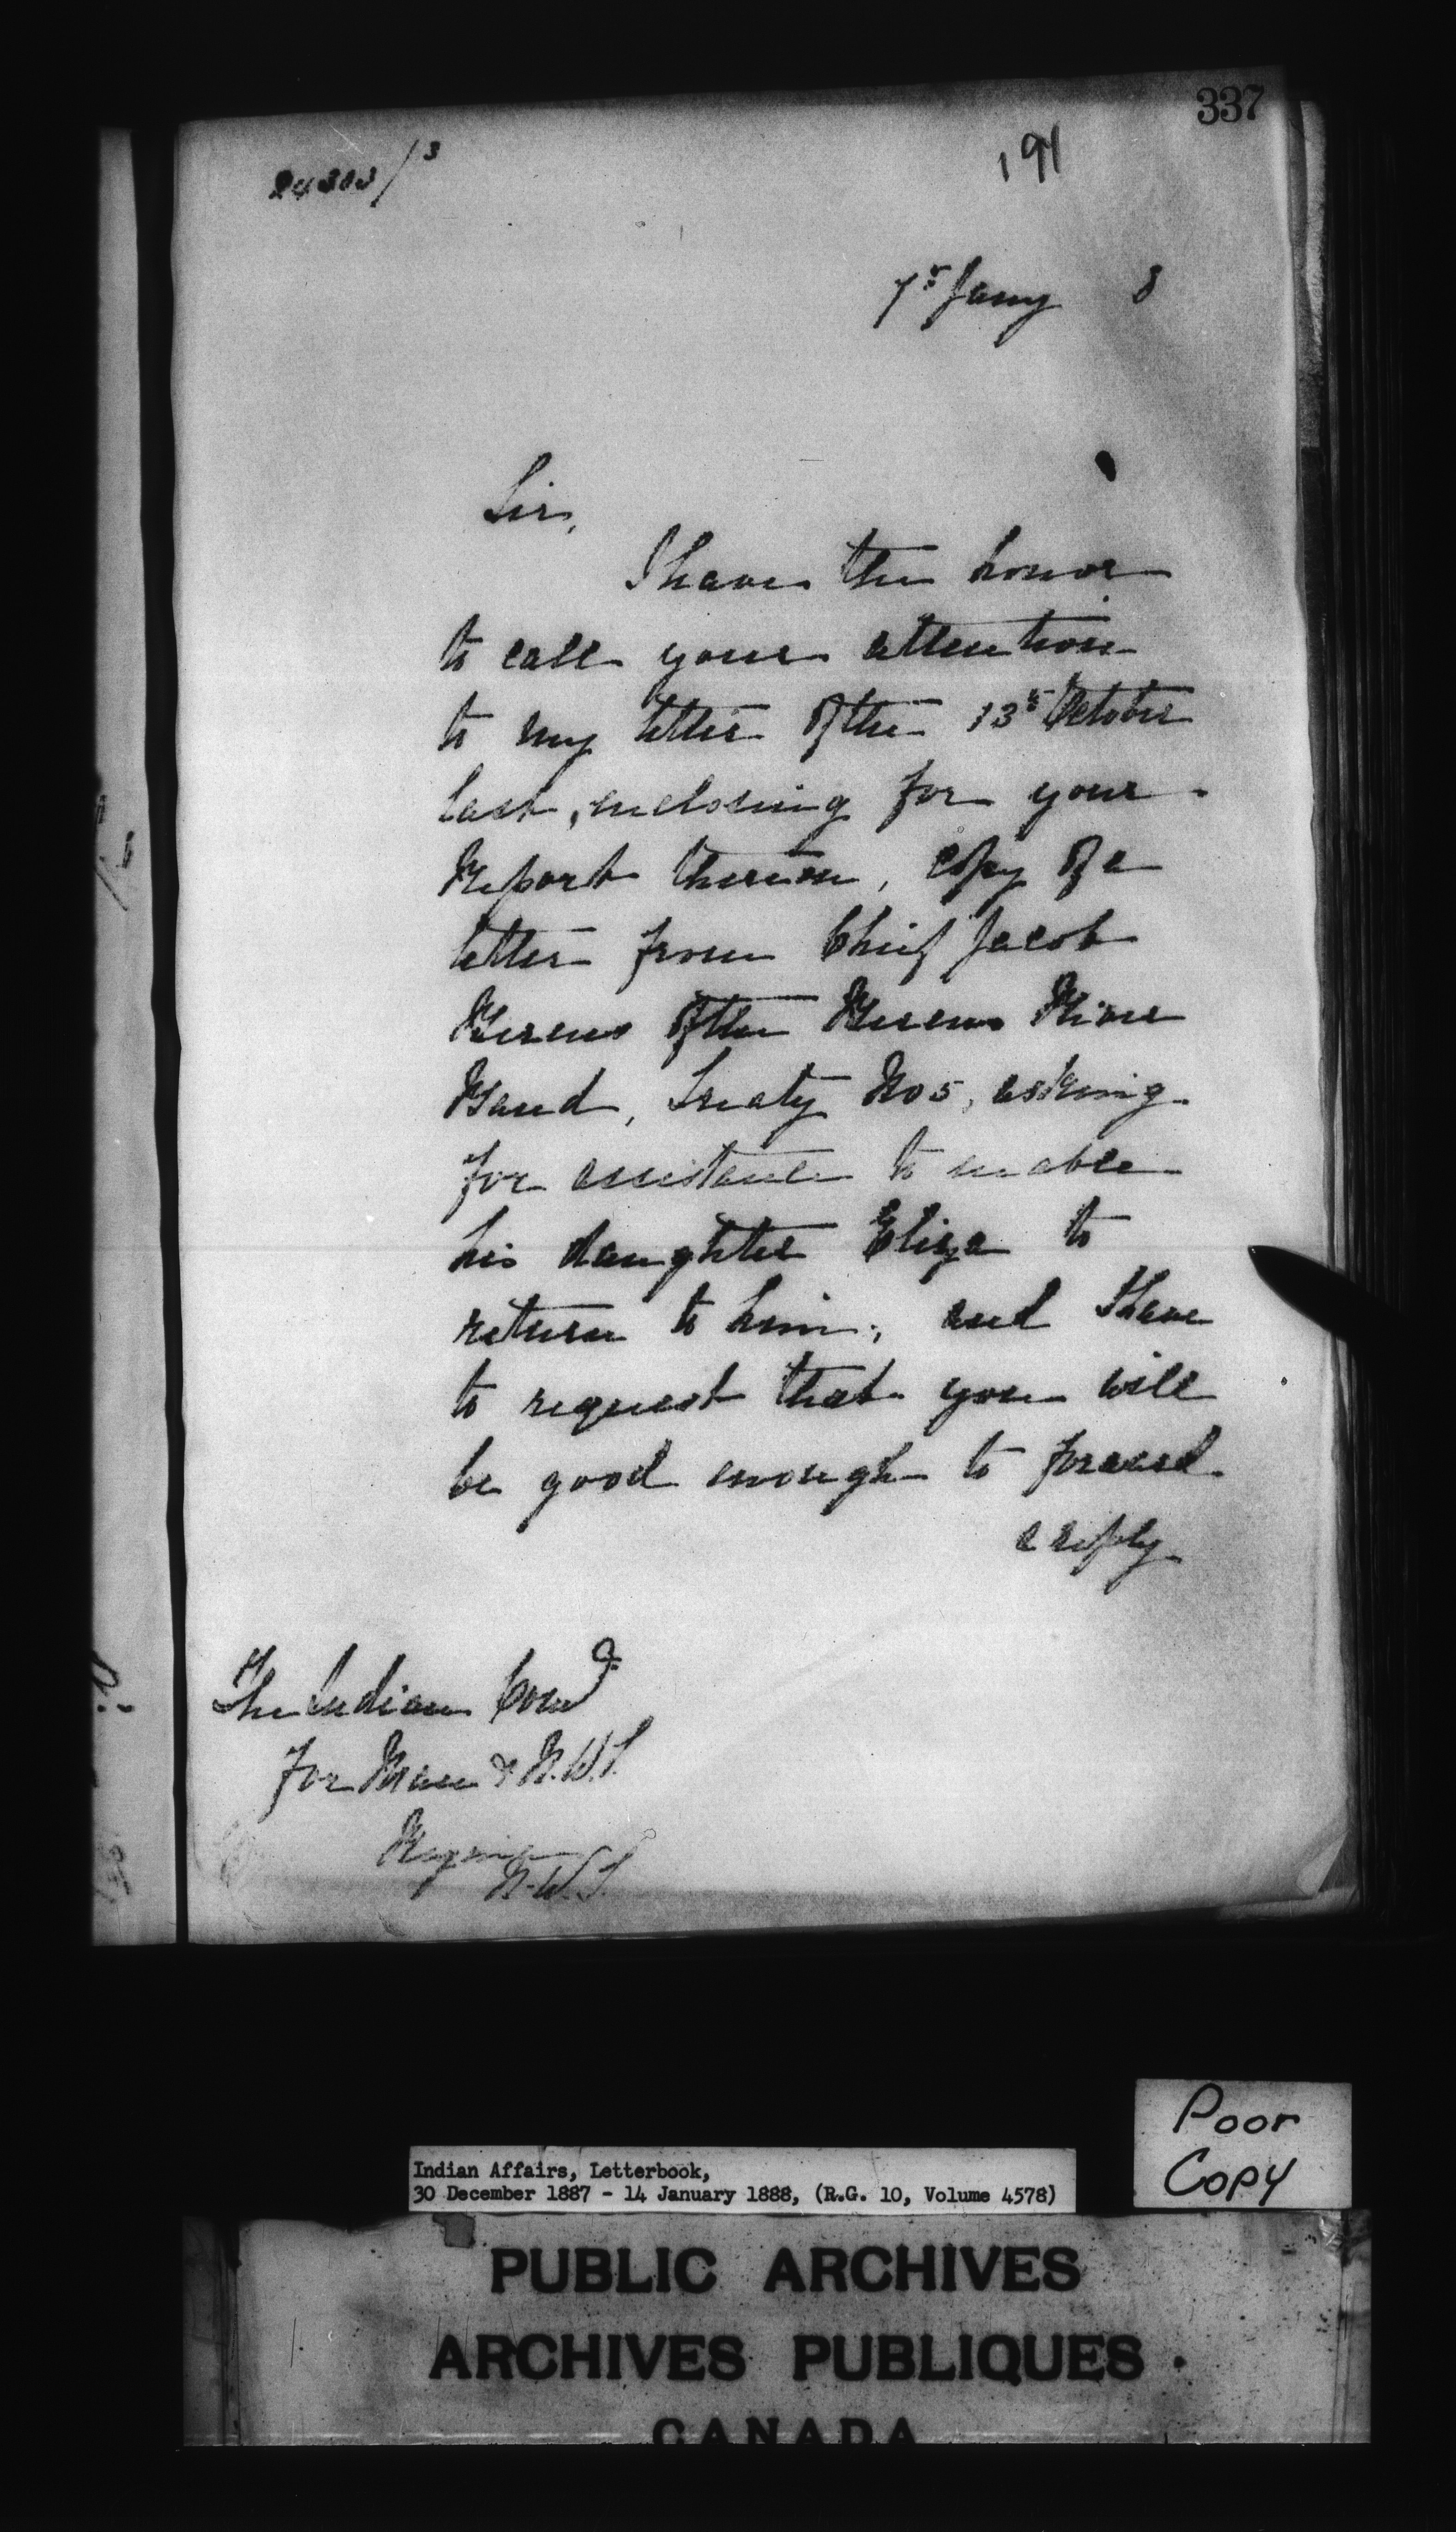 337
191
24303/3
7th Jany 8
Sir,
I have the honor
to call your attention
to my letter of the 13th October
last, enclosing for your
Report thereon, copy of a
letter from Chief Jacob
Berens of the Berens River
Band, Treaty No 5, asking
for assistance to enable
his daughter Eliza to
return to him; and I have
to request that you will
be good enough to forward
a reply
The Indian Comr
for Man & N.W.T.
Regina
N.W.T.
Poor
Copy
Indian Affairs, Letterbook,
30 December 1887 - 14 January 1888, (R.G. 10, Volume 4578)
PUBLIC ARCHIVES
ARCHIVES PUBLIQUES
CANADA